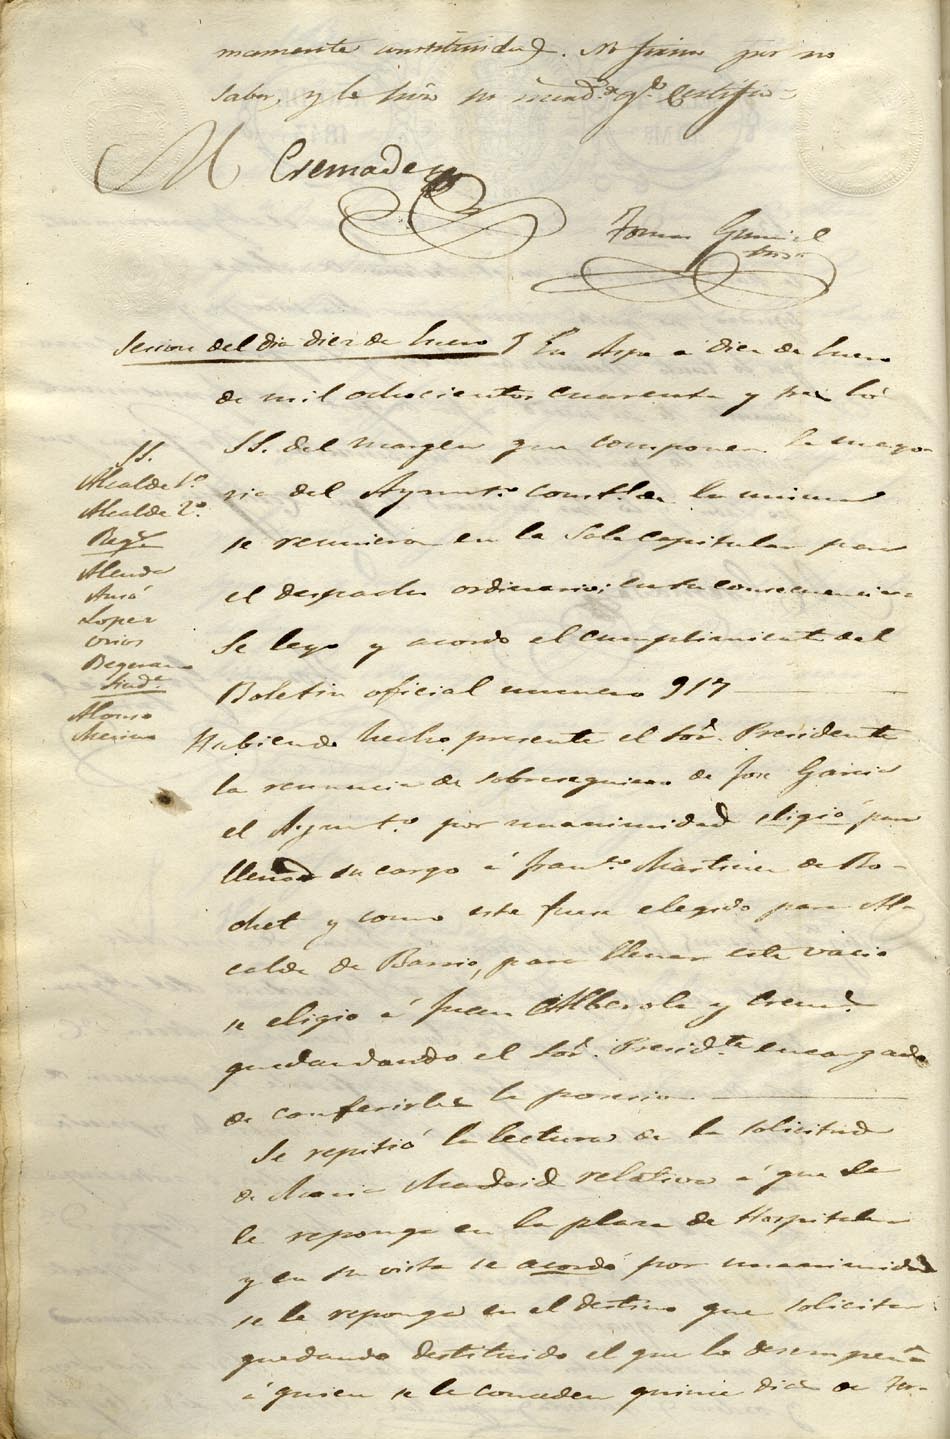 mamente constituida. No firma por no
saber, y le hizo su mand.º q.e Certifico
M Cremades
Tomas
Sesion del dia diez de Enero } En Aspe á diez de Enero
de mil ochocientos cuarenta y tres los
SS. del margen que componen la mayo-
ria del Ayunt.º const.l de la misma
se reunieron en la Sala Capitular para
el despacho ordinario; en su consecuencia
Se leyo y acordo el cumplimiento del
Boletin oficial numero 917
SS.
Alcalde 1.º
Alcalde 2.º
Reg.s
Almda
Lopez
Begerano
Sind.s
Alonso
Merino
Habiendo hecho presente el Sor. Presidente
la renuncia de sobreseguiero de Jose Garcia
el Ayunt.º por unanimidad eligió para
llenar su cargo á Fran.co Martinez de Bo-
ket y como este fuese elegido para Al-
calde de Barrio, para llenar este vacio
se eligio á Juan Alberola y Crem.s
quedandando el Sor. Presid.te encargado
de conferirles la posesion.
Se repitió la lectura de la solicitud
de Maria Madrid relativa á que se
le reponga en la plaza de Hospitalera
y en su vista se acordó por unanimidad
se le reponga en el destino que solicita
quedando destituido el que lo desempeña
á quien se le conceden quince dias de ter-